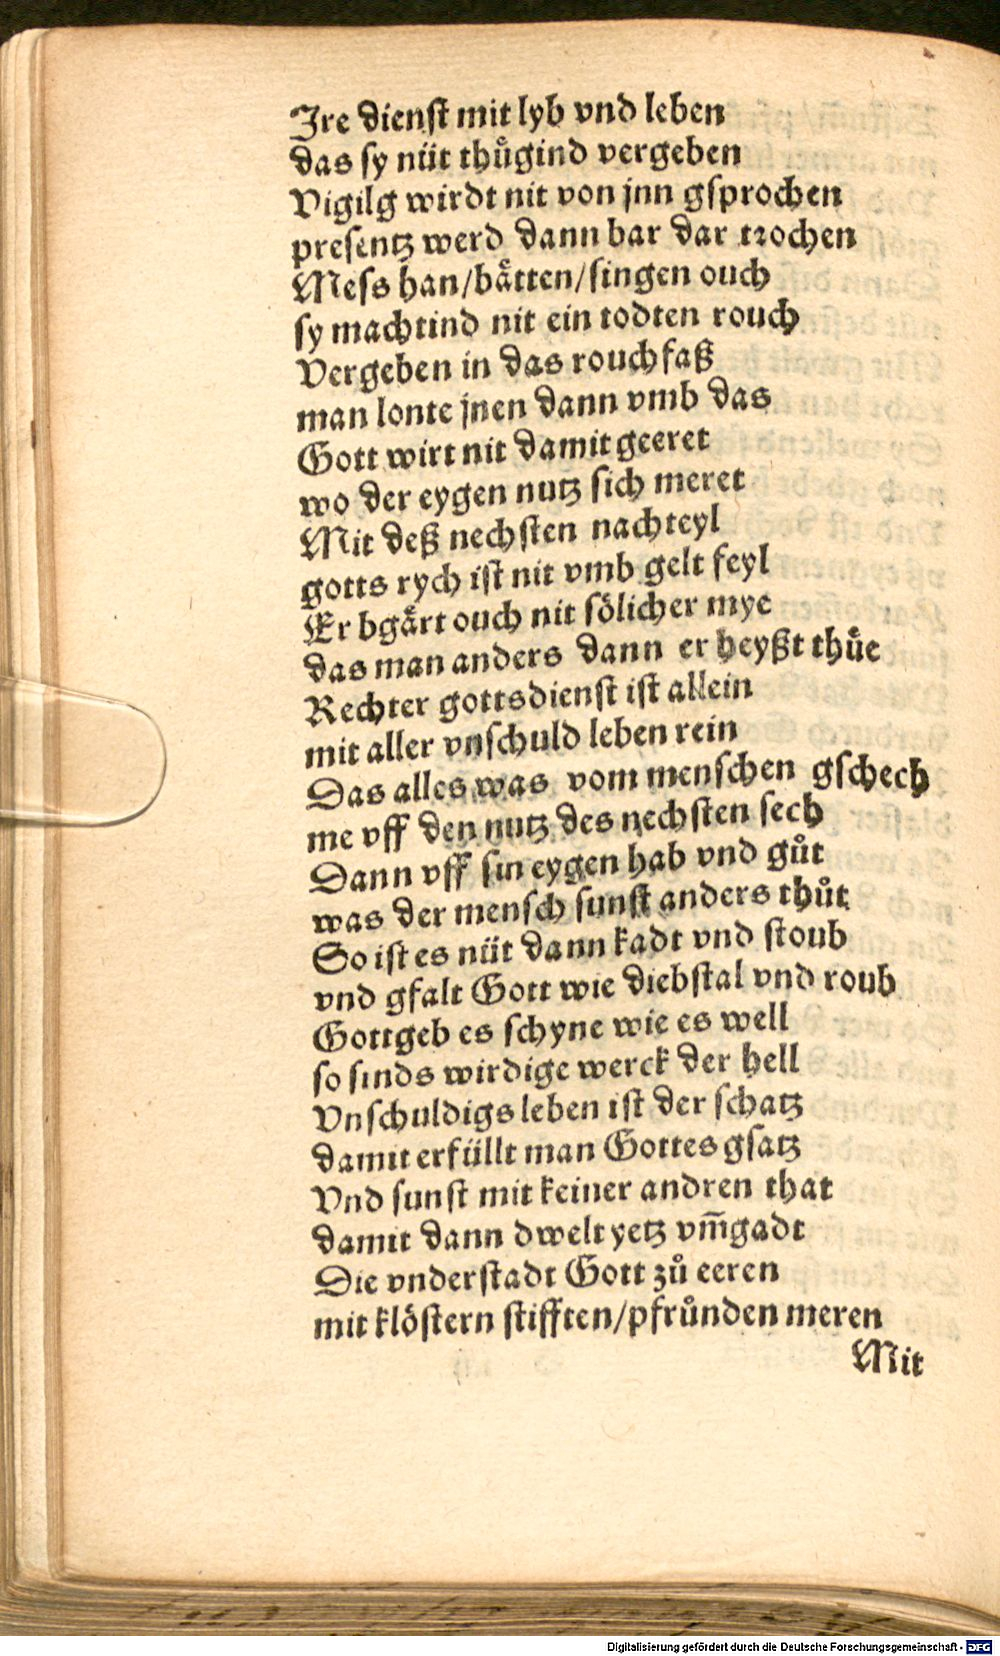 Jre dienſt mit lyb vnd leben
das ſy nüt thuͤgind vergeben
Vigilg wirdt nit von jnn gſprochen
preſentz werd dann bar dar trochen
Meſs han/baͤtten/ſingen ouch
ſy machtind nit ein todten rouch
Vergeben in das rouchfaß
man lonte jnen dann vmb das
Gott wirt nit damit geeret
wo der eygen nutz ſich meret
Mit deß nechſten nachteyl
gotts rych iſt nit vmb gelt feyl
Er bgaͤrt ouch nit ſoͤlicher mye
das man anders dann er heyßt thuͤe
Rechter gottsdienſt iſt allein
mit aller vnſchuld leben rein
Das alles was vom menſchen gſchech
me vff den nutz des nechſten ſech
Dann vff ſin eygen hab vnd guͦt
was der menſch ſunſt anders thuͦt
So iſt es nüt dann kadt vnd ſtoub
vnd gfalt Gott wie diebſtal vnd roub
Gottgeb es ſchyne wie es well
ſo ſinds wirdige werck der hell
Vnſchuldigs leben iſt der ſchatz
damit erfüllt man Gottes gſatz
Vnd ſunſt mit keiner andren that
damit dann dwelt yetz vm̄gadt
Die vnderſtadt Gott zuͦ eeren
mit klöſtern ſtifften/pfruͦnden meren
Mit
Digitalisierung gefördert durch die Deutsche Forschungsgemeinschaft - DFG